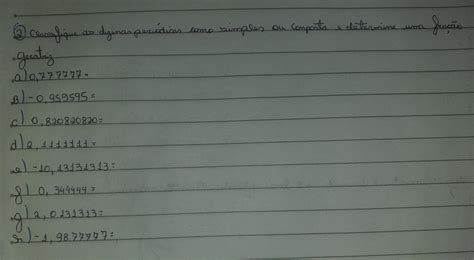 ② Classifique as dizimas periódicas como simples ou composta e determine uma fração
geratriz
a) 0,777777=
B) -0,959595=
c) 0,820820820=
d) 2,1111111=
e) -10,13131313=
f) 0,344444=
g) 2,0131313=
h) -1,9877777=